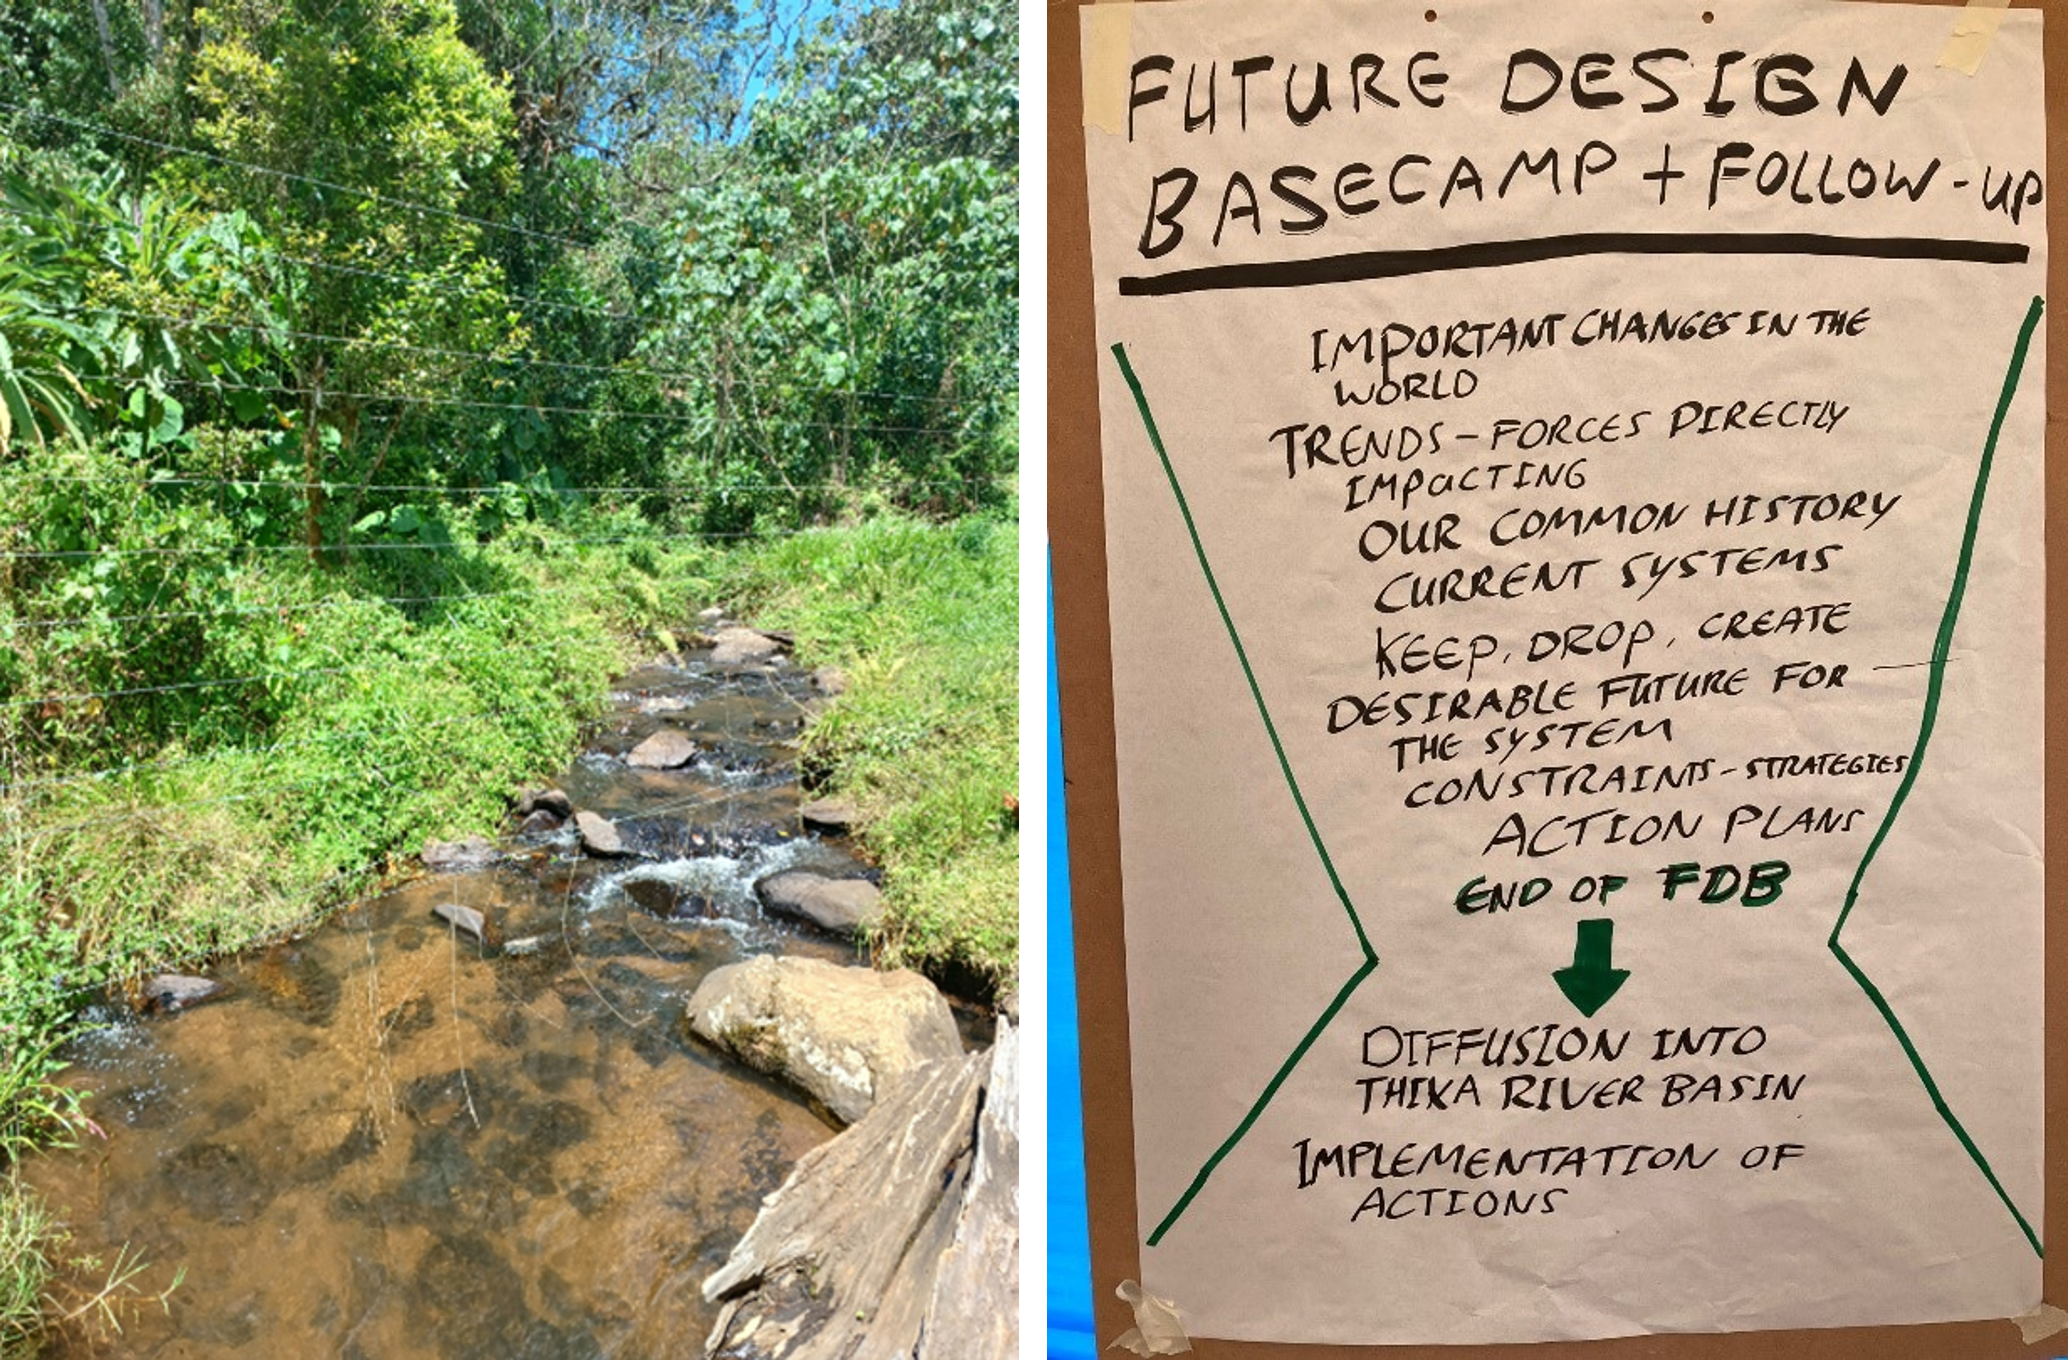 FUTURE DESIGN
BASECAMP + FOLLOW-UP
IMPORTANT CHANGES IN THE
WORLD
TRENDS - FORCES DIRECTLY
IMPACTING
OUR COMMON HISTORY
CURRENT SYSTEMS
KEEP, DROP, CREATE
DESIRABLE FUTURE FOR
THE SYSTEM
CONSTRAINTS - STRATEGIES
ACTION PLANS
END OF FDB
DIFFUSION INTO
THIKA RIVER BASIN
IMPLEMENTATION OF
ACTIONS